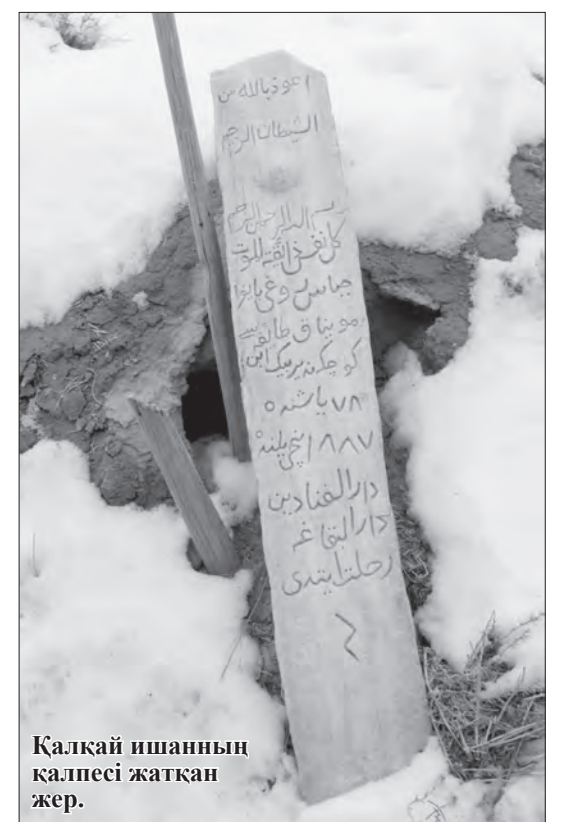 اعوذ بالله من
الشيطان الرجيم
بسم الله الرحمن الرحيم
كل نفس ذائقة الموت
روغى
موبناق طائفه سى
كوچكنه بيربيك ابن
٧٨ ياشنده
١٨٨٧ نچى يلنده
دارالفنادين
دارالبقاغه
رحلت ايتدى
Қалқай ишанның
қалпесі жатқан
жер.